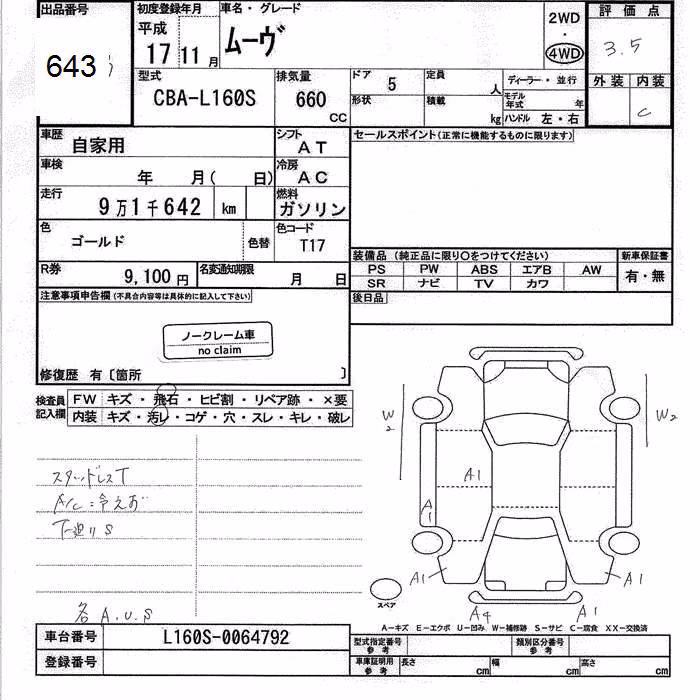 出品番号
643
初度登録年月
平成
17 11 月
車名・グレード
ムーヴ
2WD
・
4WD
評価点
3.5
外装 内装
C
型式
CBA-L160S
排気量
660
CC
ドア
5
定員
人
形状
積載
kg
ディーラー・並行
モデル
年式 年
ハンドル 左・右
車歴
自家用
シフト
AT
セールスポイント(正常に機能するものに限ります)
車検
年 月( 日)
冷房
AC
走行
9万1千642 km
燃料
ガソリン
色
ゴールド
色替
色コード
T17
装備品 (純正品に限り○をつけてください)
新車保証書
PS PW ABS エアB AW
有・無
SR ナビ TV カワ
R券
9,100 円
名変通知期限
月 日
後日品
注意事項申告欄(不具合内容等は具体的に記入して下さい)
ノークレーム車
no claim
修復歴 有〔箇所 〕
検査員
記入欄
FW キズ・飛石・ヒビ割・リペア跡・×要
内装 キズ・汚レ・コゲ・穴・スレ・キレ・破レ
スタッドレスT
A/C:冷えず
下廻りS
各A.U.S
W2
W2
A1
A1
A1
A1
A4
A1
スペア
A-キズ E-エクボ U-凹み W-補修跡 S-サビ C-腐食 XX-交換済
車台番号
L160S-0064792
登録番号
型式指定番号
参考
類別区分番号
参考
車庫証明用
参考
長さ cm
幅 cm
高さ cm